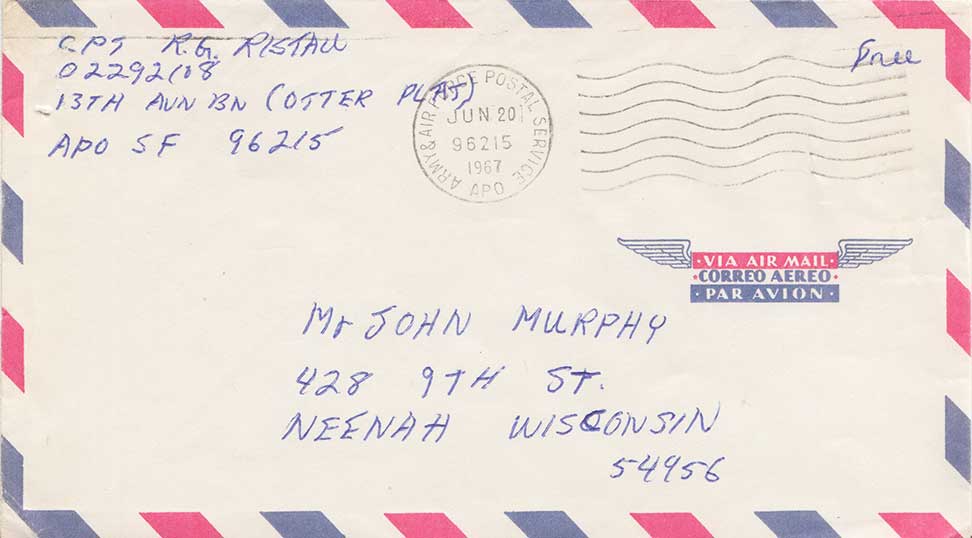 CPT R.G. RISTAU
02292108
13TH AVN BN (OTTER PLAT)
APO SF 96215
ARMY & AIR FORCE POSTAL SERVICE
JUN 20
96215
1967
APO
Free
·VIA AIR MAIL·
·CORREO AEREO·
·PAR AVION·
Mr JOHN MURPHY
428 9TH ST.
NEENAH WISCONSIN
54956